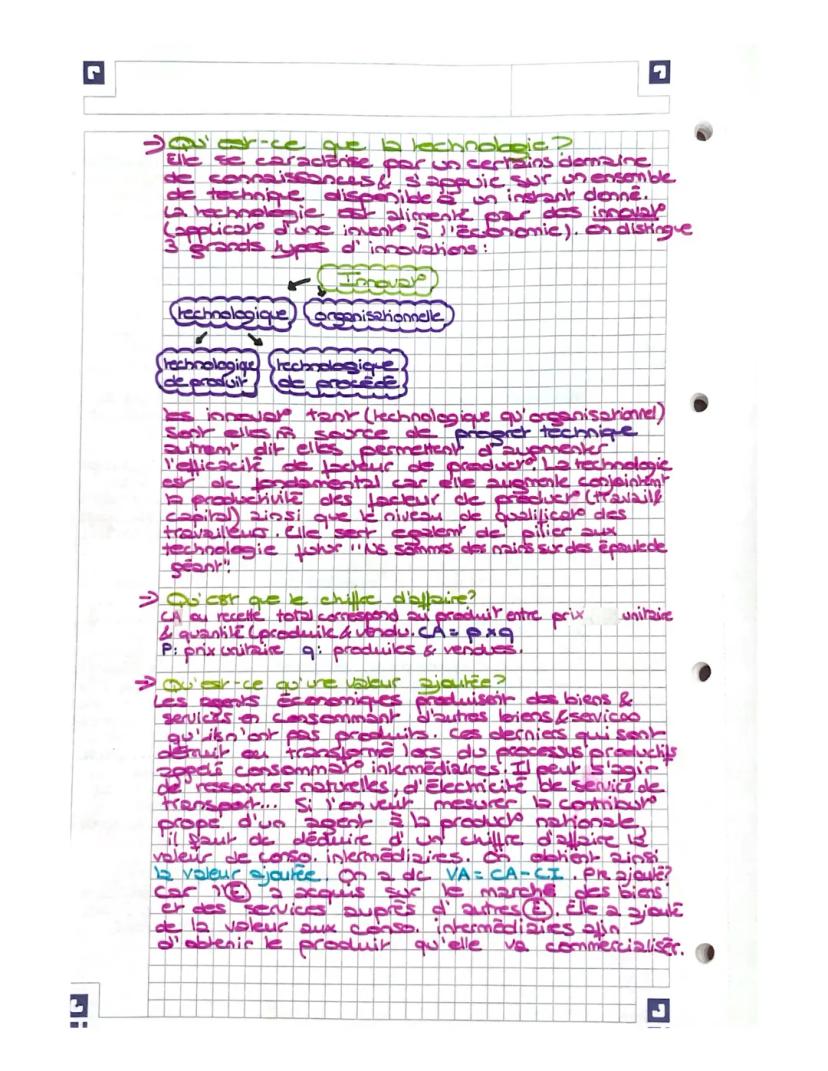 ⇒ Qu'est-ce que la technologie ?
Elle se caractérise par un certains domaine
de connaissances & s'appuie sur un ensemble
de technique disponible à un instant donné.
La technologie est alimenté par des innovat°
(applicat° d'une invent° à l'économie). On distingue
3 grands types d'innovations :
Innovat°
technologique organisationnelle
technologique de produit technologique de procédé
Les innovat° tant (technologique qu'organisationnel)
sont elles m̂ source de progret technique
autremt dit elles permettent d'augmenter
l'efficacité de facteur de product°. La technologie
est dc fondamental car elle augmente conjointemt
la productivité des facteur de product° (travail &
capital) ainsi que le niveau de qualificat° des
travailleurs. Elle sert egalemt de pilier aux
technologie futur "Ns sommes des nains sur des épaule de
géant".
⇒ Qu'est que le chiffre d'affaire?
CA ou recette total correspond au produit entre prix unitaire
& quantité (produite & vendu. CA = p x q
P: prix unitaire q: produites & vendues.
⇒ Qu'est-ce qu'une valeur ajoutée?
Les agents économiques produisent des biens &
services en consommant d'autres biens & services
qu'ils n'ont pas produits. Ces derniers qui sont
détruit ou transformé lors du processus productifs
appelé consommat° intermédiaires. Il peut s'agir
de ressources naturelles, d'électricité de service de
transport... Si l'on veut mesurer la contribut°
prope d'un agent à la product° nationale
il faut de déduire d'un chiffre d'affaire la
valeur de conso. intermédiaires. On obtient ainsi
la valeur ajoutée. On a dc VA = CA - CI. Prk ajouté?
Car l'(E) a acquis sur le marché des biens
et des services auprès d'autres (E). Elle a ajouté
de la valeur aux conso. intermédiaires afin
d'obtenir le produit qu'elle va commercialiser.